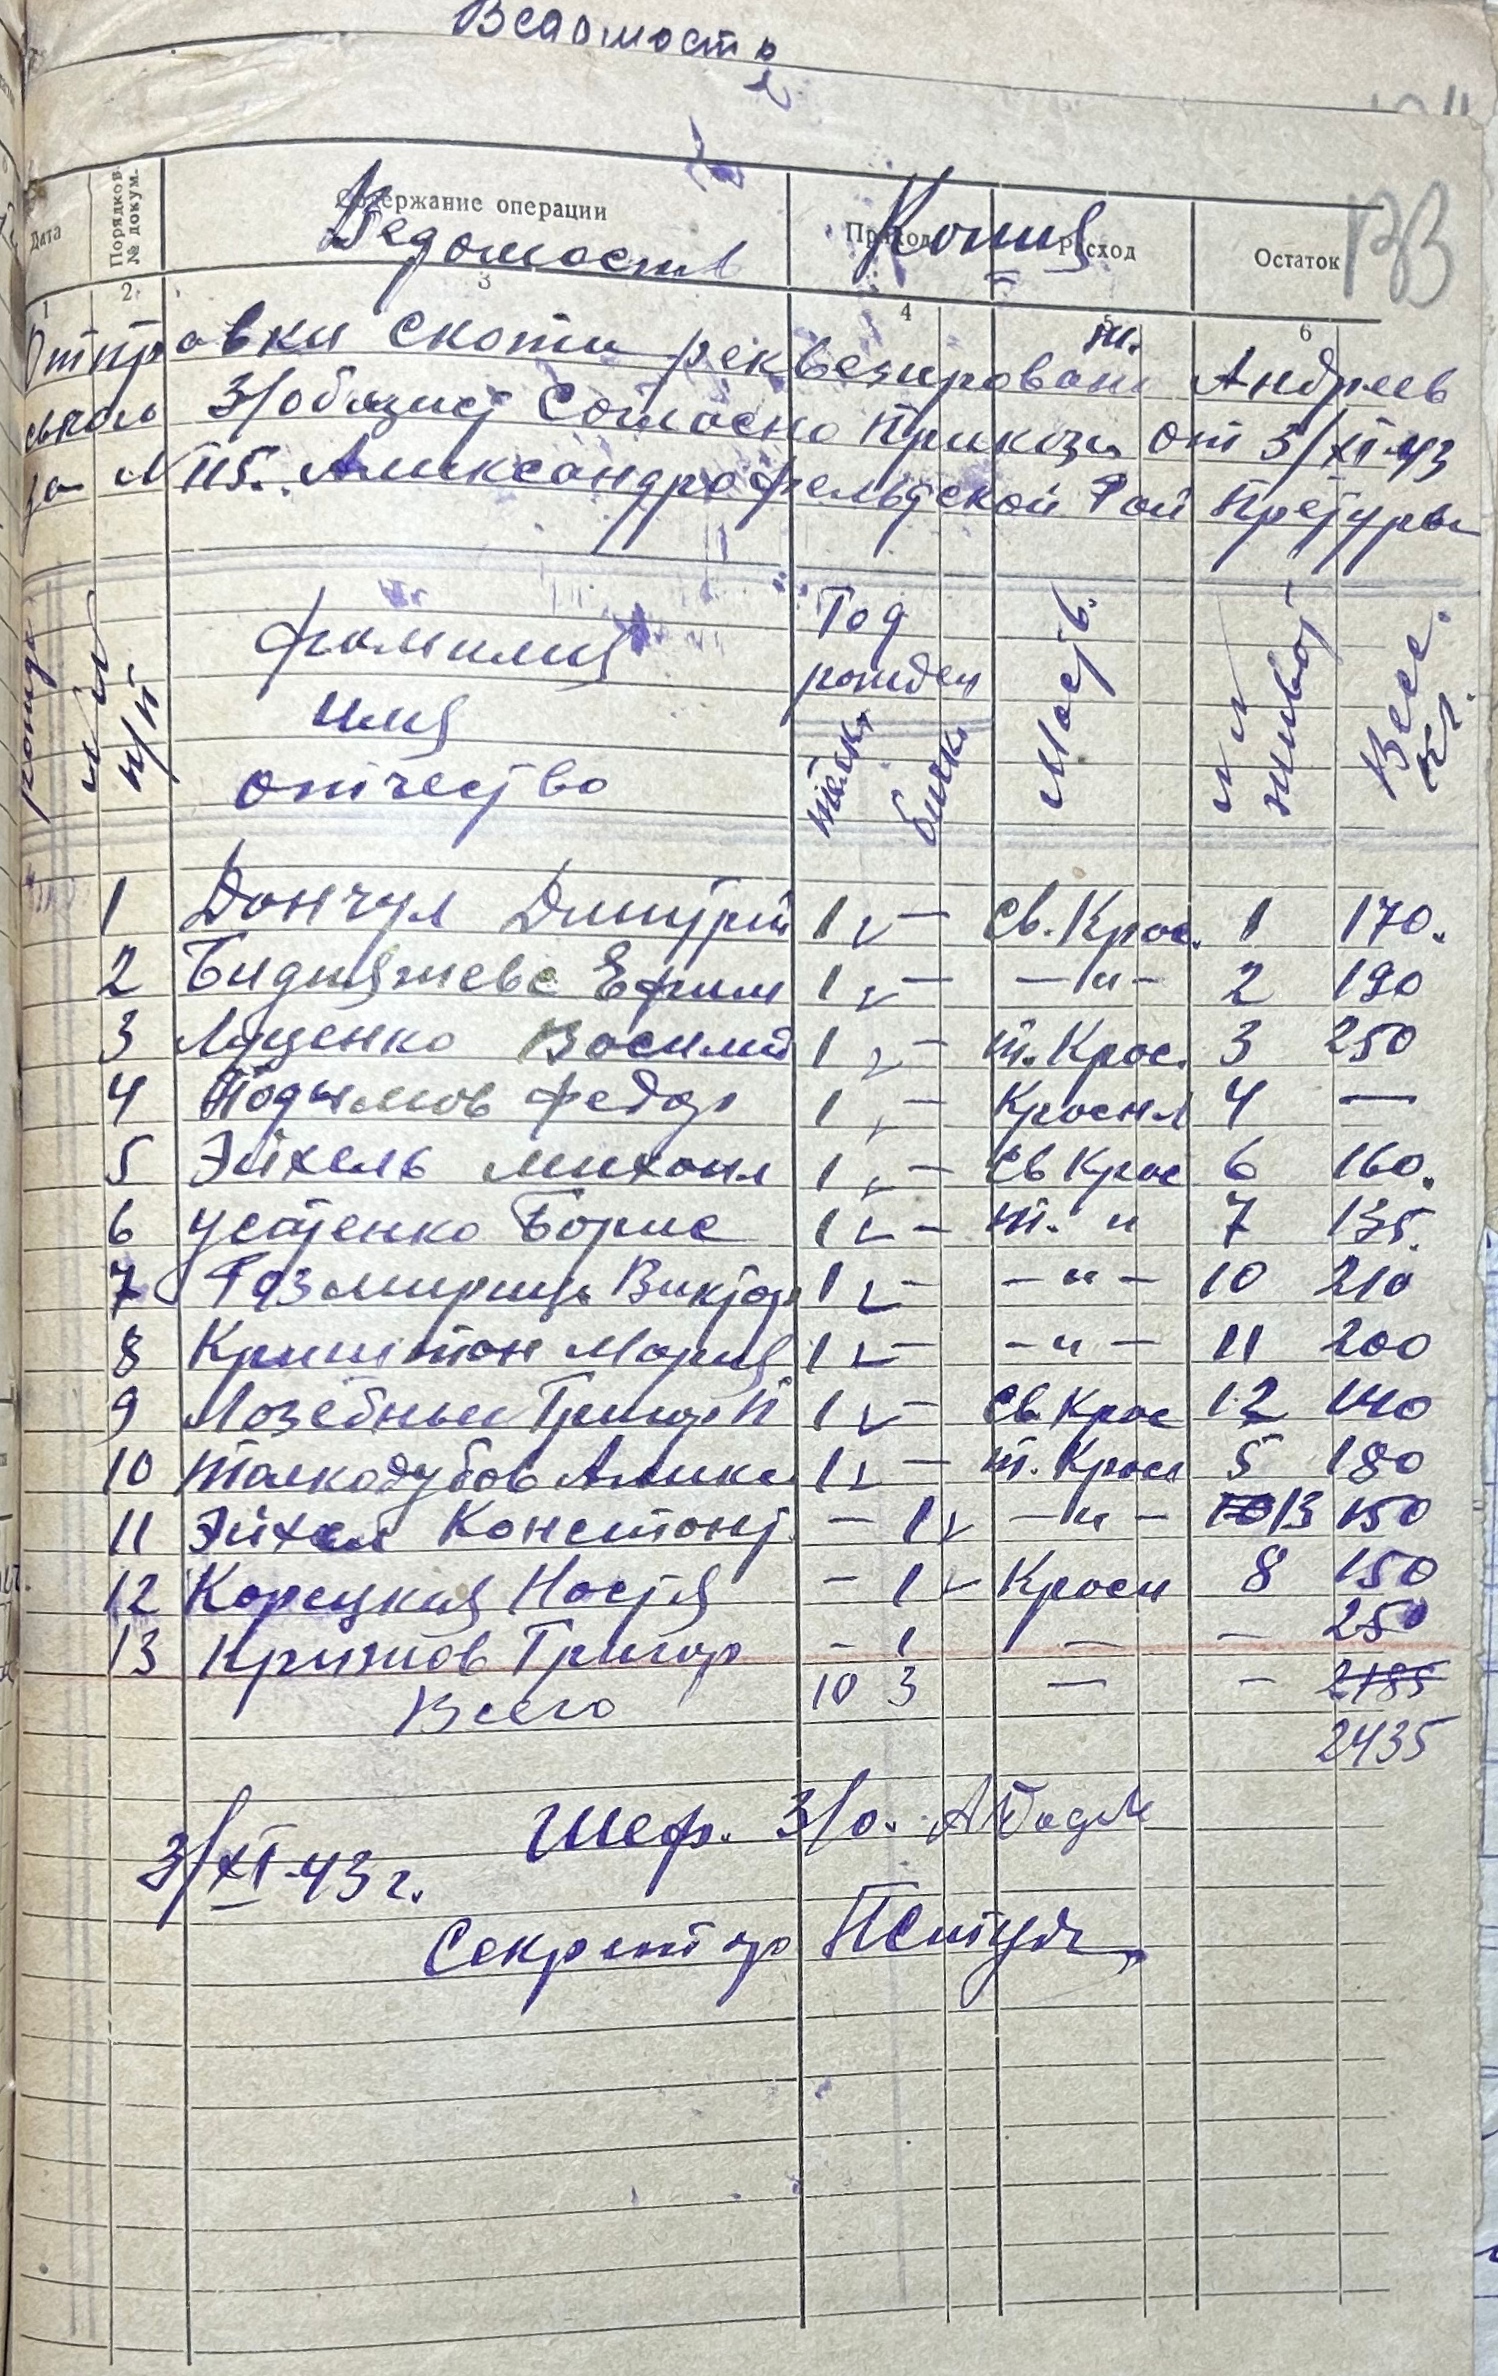 Ведомость
Дата Порядков. № докум. Содержание операции Приход Расход Остаток
Ведомость Копия
133
1 2 3 4 5 6
Отправки скота реквезировани Андреев
ского З/общест Согласно Приказа от 3/XI-43
за № 115. Александрофельдской Рай Претуры
№ № п/п
фамилия имя отчество
Год рожден
телк. бычк.
Масть.
№ № живой
Весс. кг.
1 Дончул Дмитрий 1 — св. Крас. 1 170.
2 Ефим 1 — — " — 2 190
3 Луценко Василий 1 — т. Крас. 3 250
4 Подымов Федор 1 — Красн 4 —
5 Эйхель Михаил 1 — св Крас 6 160.
6 Устенко Борис 1 — т. " 7 135.
7 Виктор 1 — — " — 10 210
8 Криштон Мария 1 — — " — 11 200
9 1 — св Крас 12 140
10 Толкодубов Алекс 1 — т. Крас 5 180
11 Эйхел Констант. — 1 — " — 10 13 150
12 Корецкия Настя — 1 Красн 8 150
13 Крижов Григор — 1 — — 250
Всего 10 3 — — 2185
2435
Шеф. З/о.
3/XI-43 г.
Секретар